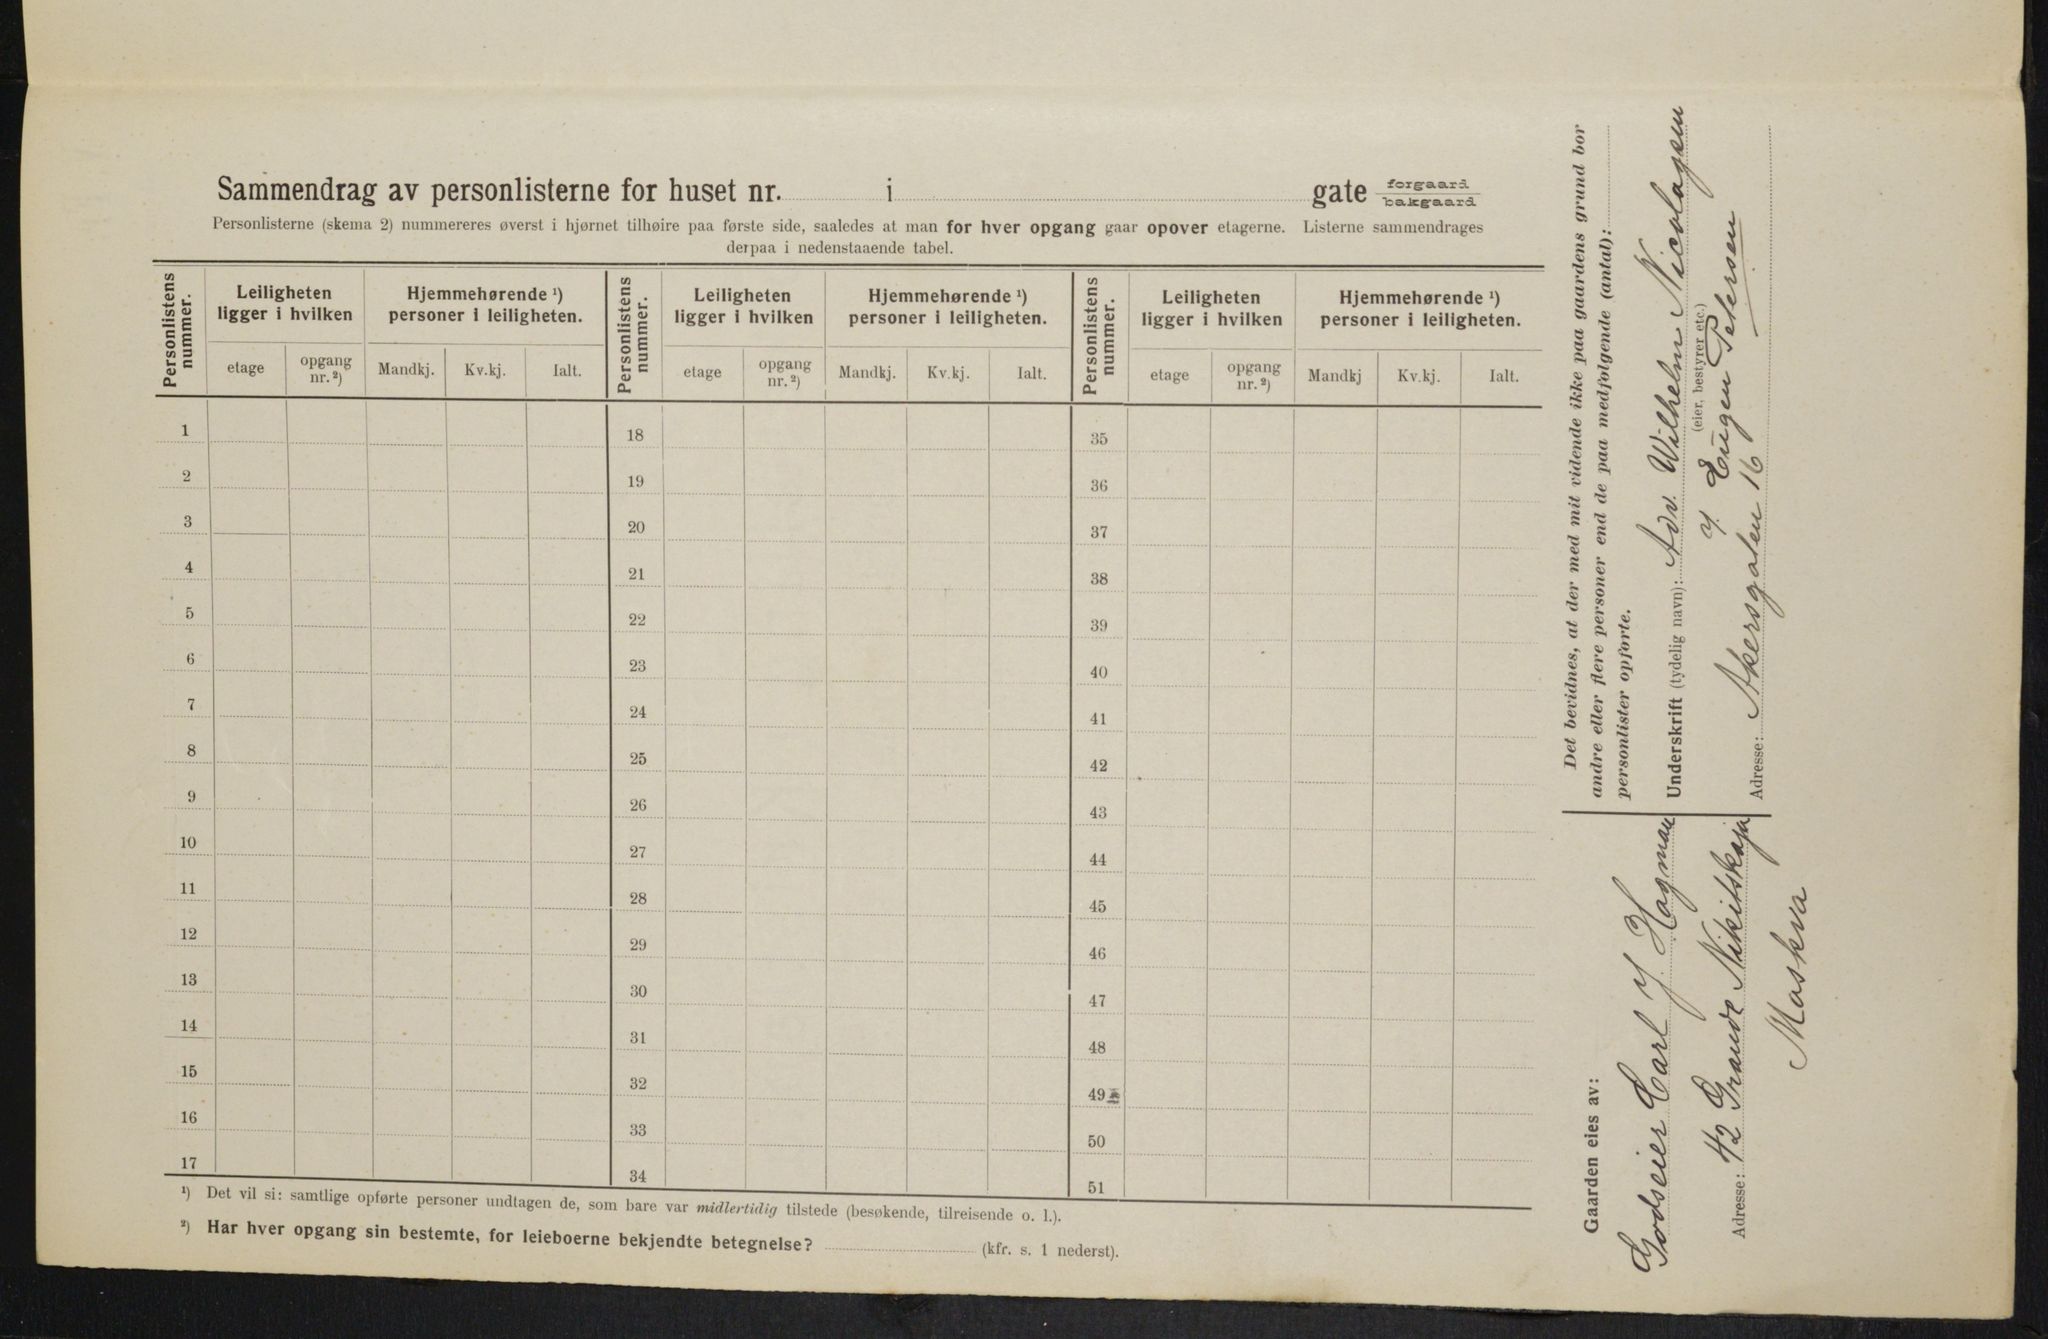 Sammendrag av personlisterne for huset nr. i gate forgaard
bakgaard
Personlisterne (skema 2) nummereres øverst i hjørnet tilhøire paa første side, saaledes at man for hver opgang gaar opover etagerne. Listerne sammendrages
derpaa i nedenstaaende tabel.
Personlistens nummer. Leiligheten ligger i hvilken Hjemmehørende ¹) personer i leiligheten. Personlistens nummer. Leiligheten ligger i hvilken Hjemmehørende ¹) personer i leiligheten. Personlistens nummer. Leiligheten ligger i hvilken Hjemmehørende ¹) personer i leiligheten.
etage opgang nr. ²) Mandkj. Kv.kj. Ialt. etage opgang nr. ²) Mandkj. Kv.kj. Ialt. etage opgang nr. ²) Mandkj Kv.kj. Ialt.
1 18 35
2 19 36
3 20 37
4 21 38
5 22 39
6 23 40
7 24 41
8 25 42
9 26 43
10 27 44
11 28 45
12 29 46
13 30 47
14 31 48
15 32 49
16 33 50
17 34 51
¹) Det vil si: samtlige opførte personer undtagen de, som bare var midlertidig tilstede (besøkende, tilreisende o. l.).
²) Har hver opgang sin bestemte, for leieboerne bekjendte betegnelse? (kfr. s. 1 nederst).
Gaarden eies av:
Godseier Carl J. Hagman
Adresse: 42 Grande Nikitskaja
Maskva
Det bevidnes, at der med mit vidende ikke paa gaardens grund bor
andre eller flere personer end de paa medfølgende (antal):
personlister opførte.
Underskrift (tydelig navn): Adv. Wilhelm Nicolaysen
(eier, bestyrer etc.)
Eugen Petersen
Adresse: Akersgaten 16